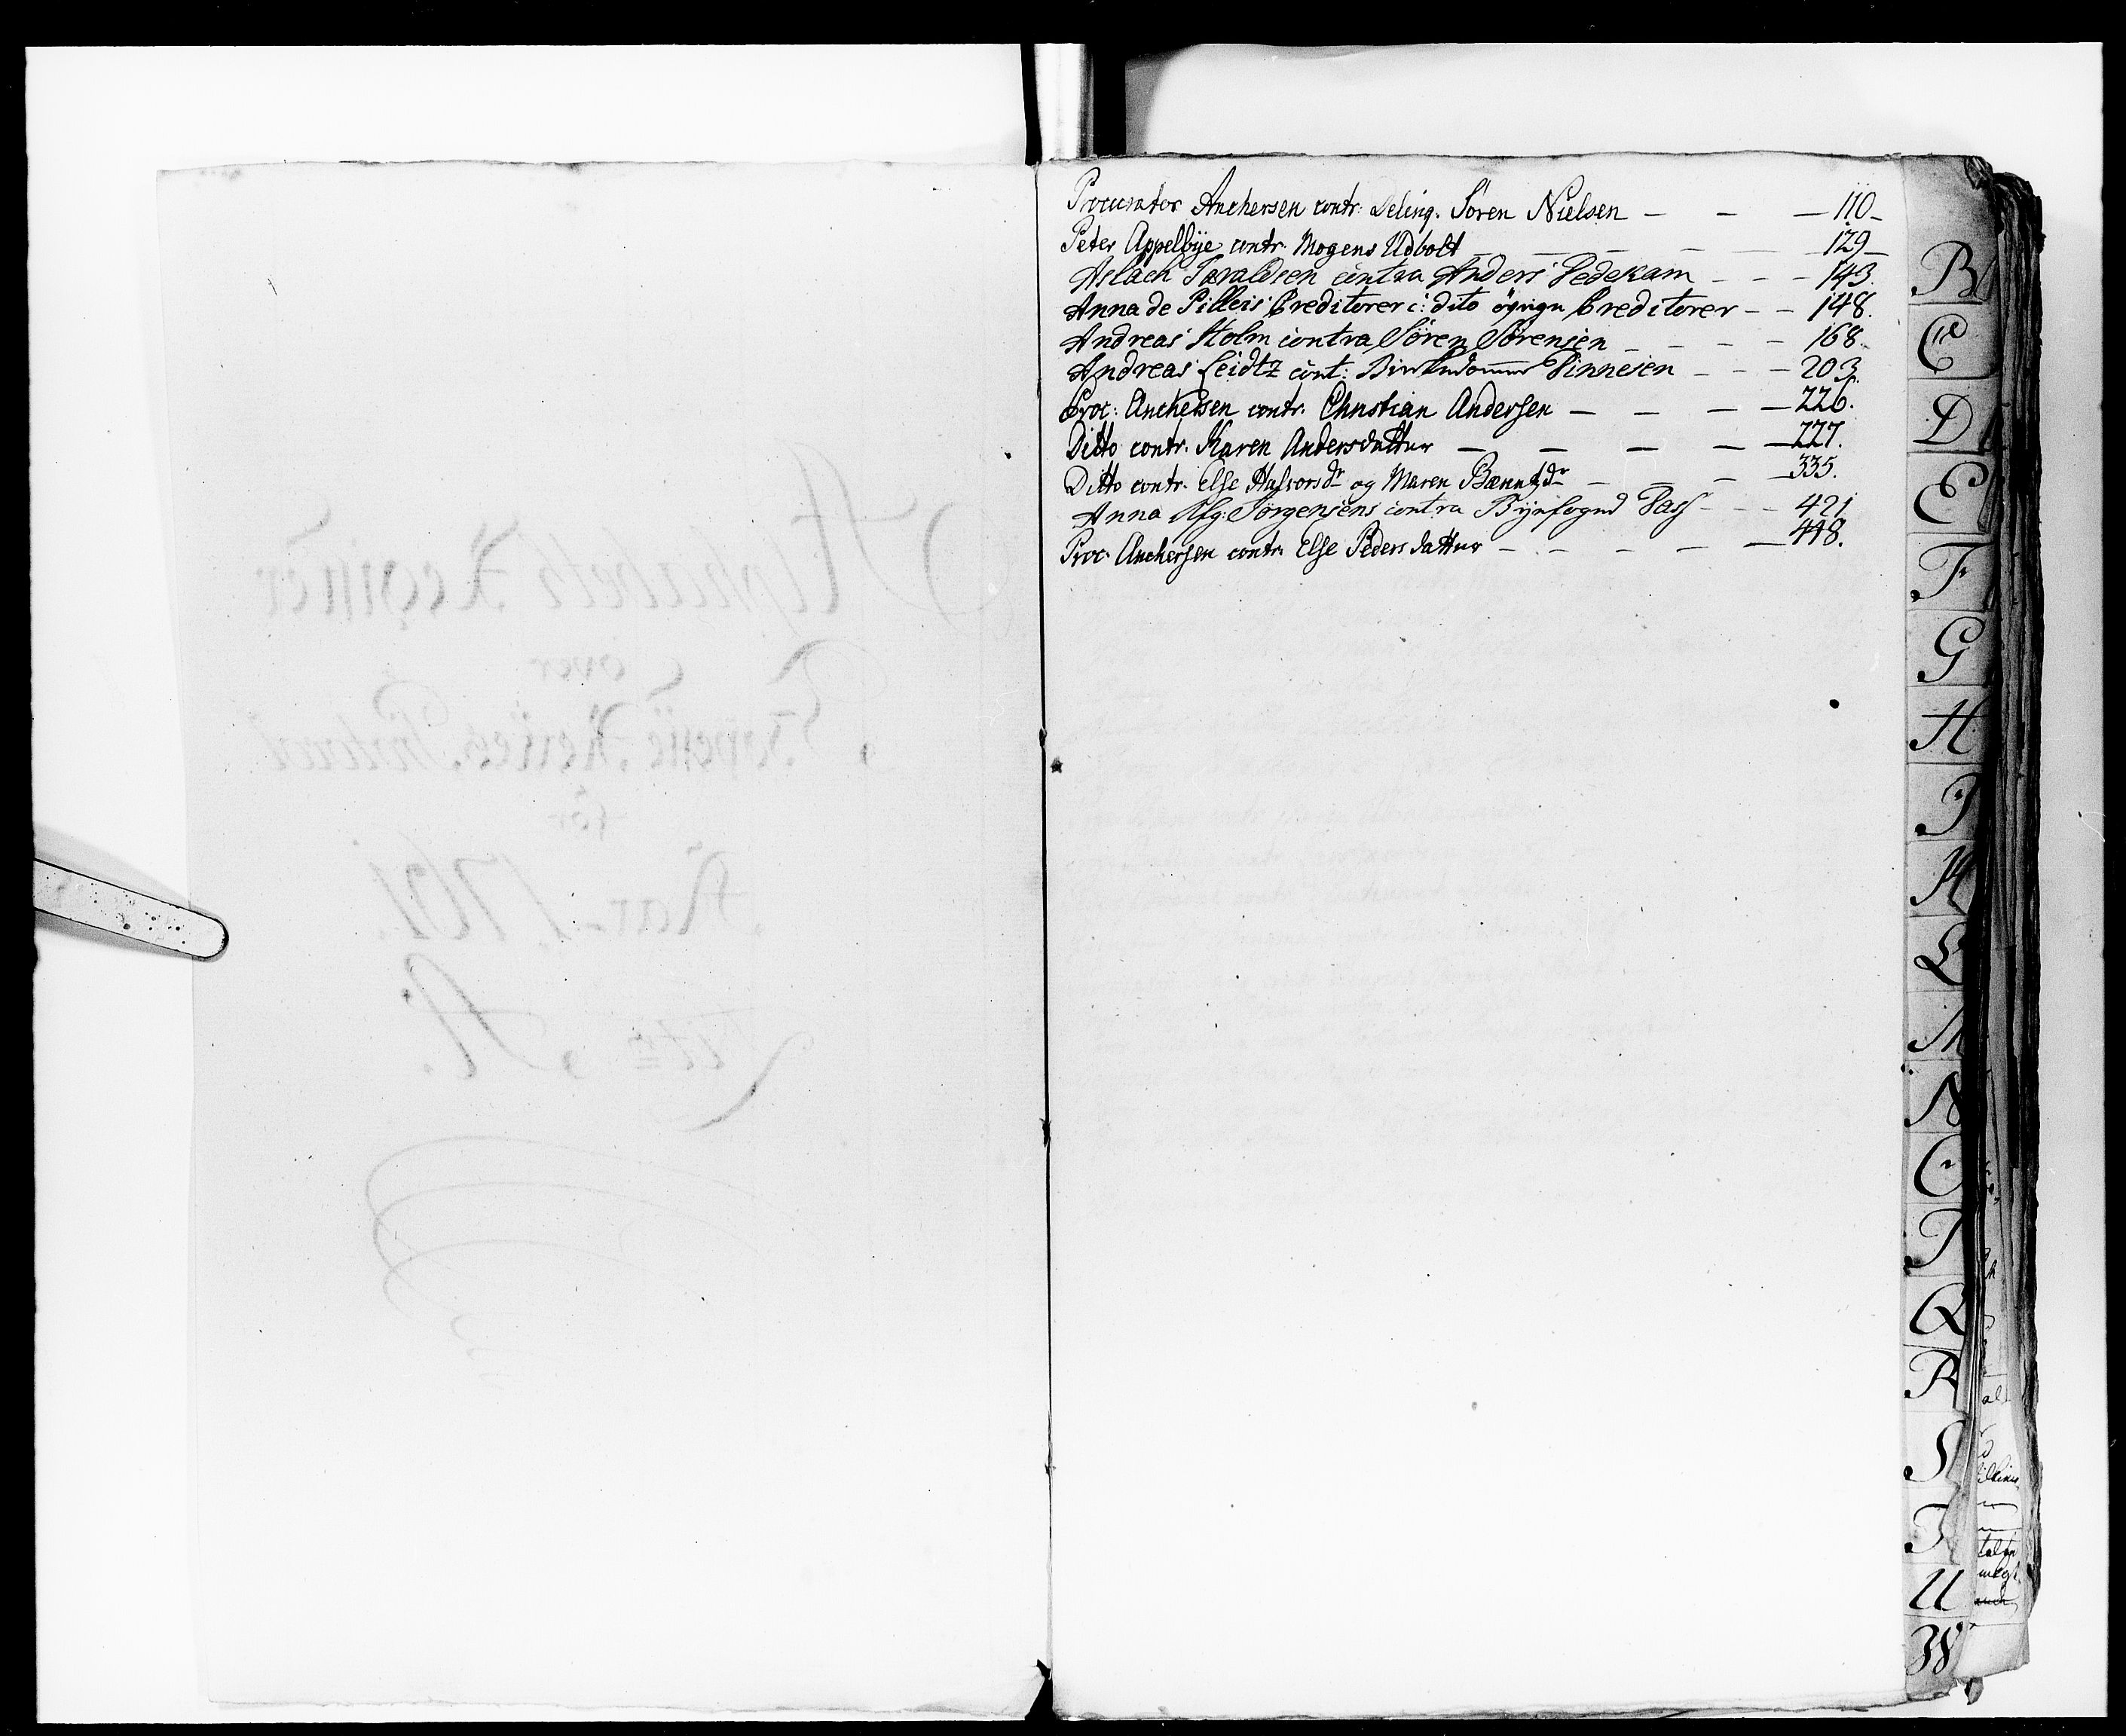 Procurator Anchersen contr: Delinq. Søren Nielsen — — — 110 —
Peter Appelbÿe contr. Mogens Udbolt — — — — 129 —
Aslach Taraldsen contra Anders Pedekam — — — 143.
Anna de Pilleis Creditorer c: dito Creditorer — — 148.
Andreas Holm contra Søren Sørensen — — — — 168.
Andreas Leidtz cont: Finnesen — — — 203.
Proc: Anchersen contr. Christian Andersen — — — — 226.
Ditto contr. Karen Andersdatter — — — — — 227.
Ditto contr. Else Halvorsdr og Maren — — — 335.
Anna Afg: Jørgensens contra Bÿefogud Pass — — — 421
Proc. Anchersen contr. Else Peders datter — — — — — 448.
B
C
D
E
F
G
H
I
K
L
M
N
O
P
Q
R
S
T
U
W